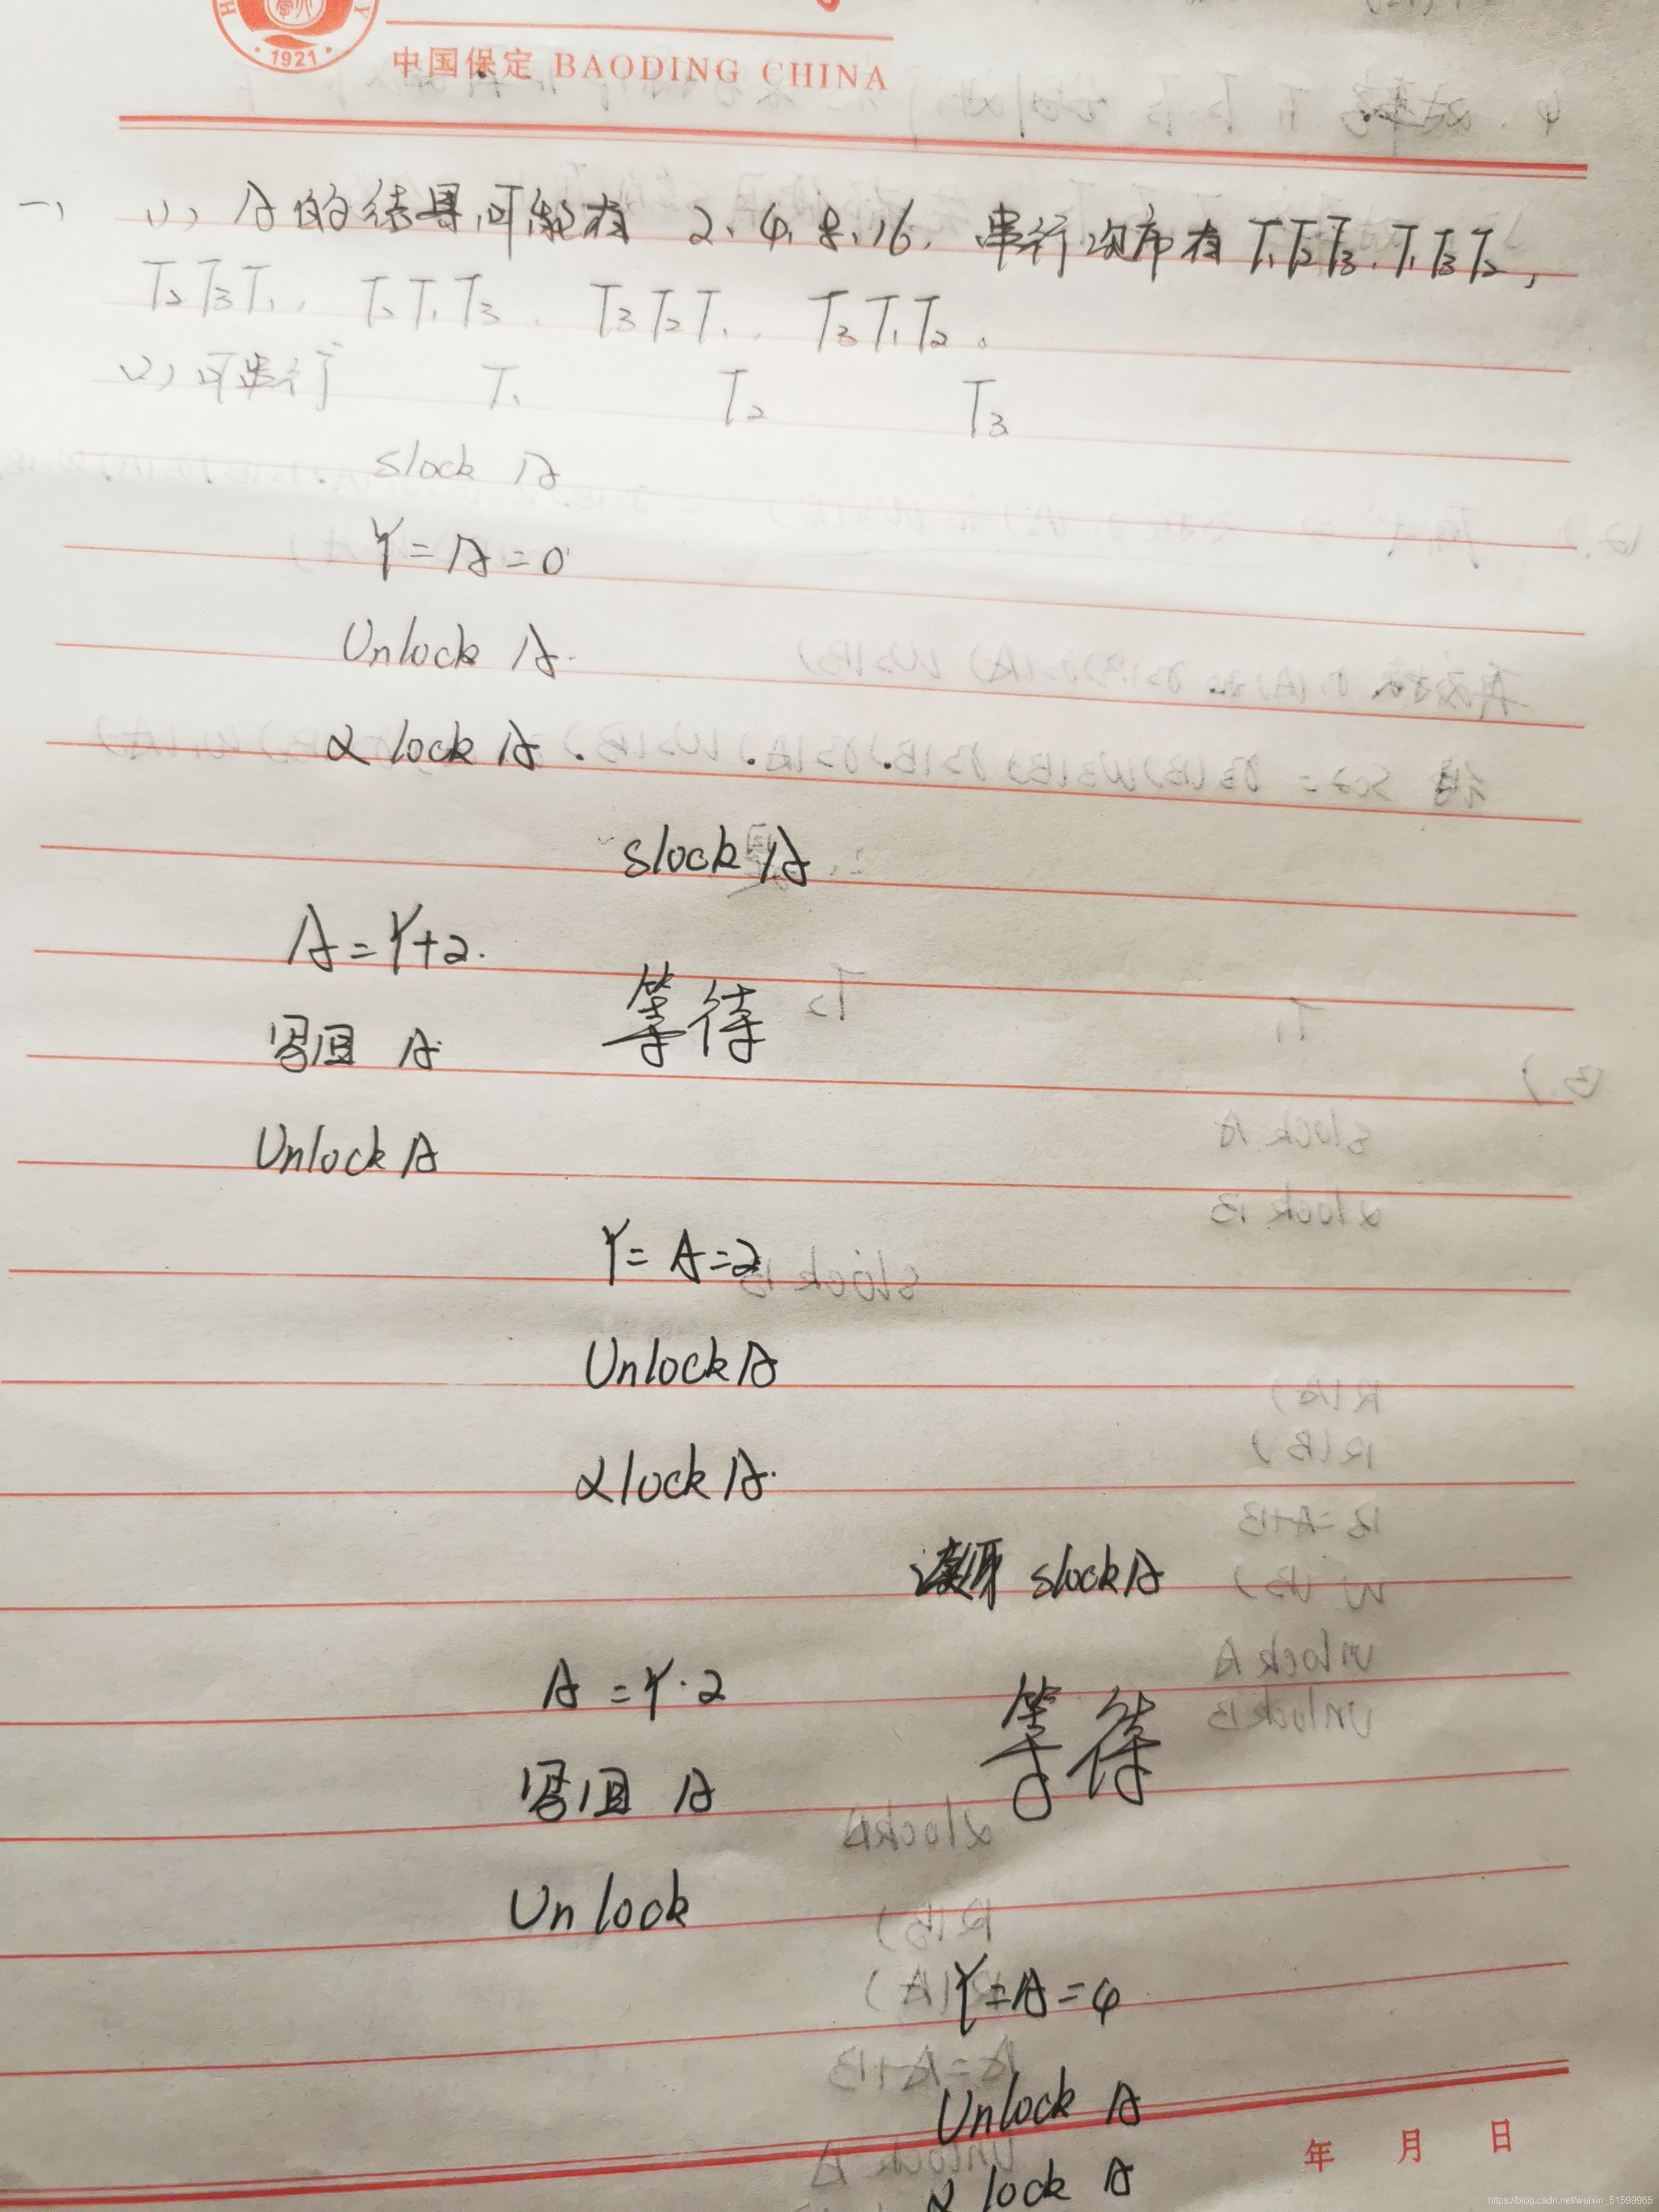 1921
中国保定 BAODING CHINA
一、 (1)、A的结果可能有 2、4、8、16. 串行次序有 T₁T₂T₃、T₁T₃T₂,
T₂T₃T₁、 T₂T₁T₃、 T₃T₂T₁、 T₃T₁T₂。
(2)可串行 T₁ T₂ T₃
slock A
Y=A=0
Unlock A
xlock A
slock A
A=Y+2.
等待
写回 A
Unlock A
Y=A=2
Unlock A
xlock A
slock A
A=Y·2
等待
写回 A
Unlock
Y=A=4
Unlock A
xlock A
年 月 日
https://blog.csdn.net/weixin_51599965